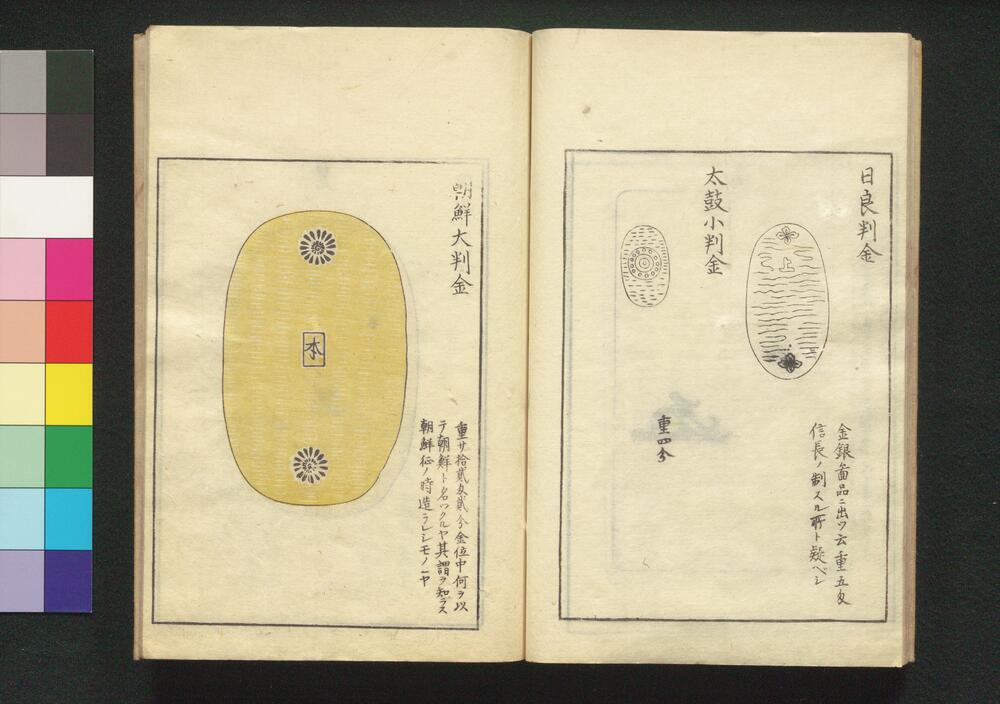 日良判金
上
金銀啚品ニ出ツ云重五匁
信長ノ制スル所ト疑ベシ
太鼓小判金
重四分
朝鮮大判金
本
重サ拾貳匁貳分金位中何ヲ以
テ朝鮮ト名ツクルヤ其謂ヲ知ラス
朝鮮征ノ時造ラレシモノニヤ